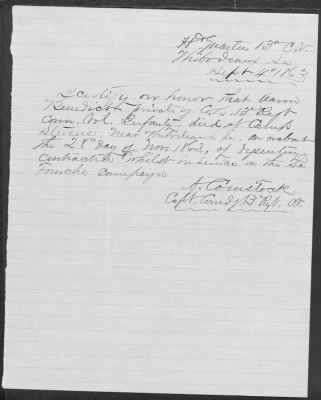 Hd Quarters 13th C.V.
Thibodeaux La
Sept 4th 1863
I certify on honor, that Aaron
Benedict private of Co. 13 Regt
Conn. Vol. Infantry, died at Camp
Stevens, near Thibodeaux La, on or about
the 28th Day of Nov. 1862, of Dysentery
contracted whilst in service in the La
Fourche campaign
A. Comstock
Capt. Comdg 13 Regt. CV.